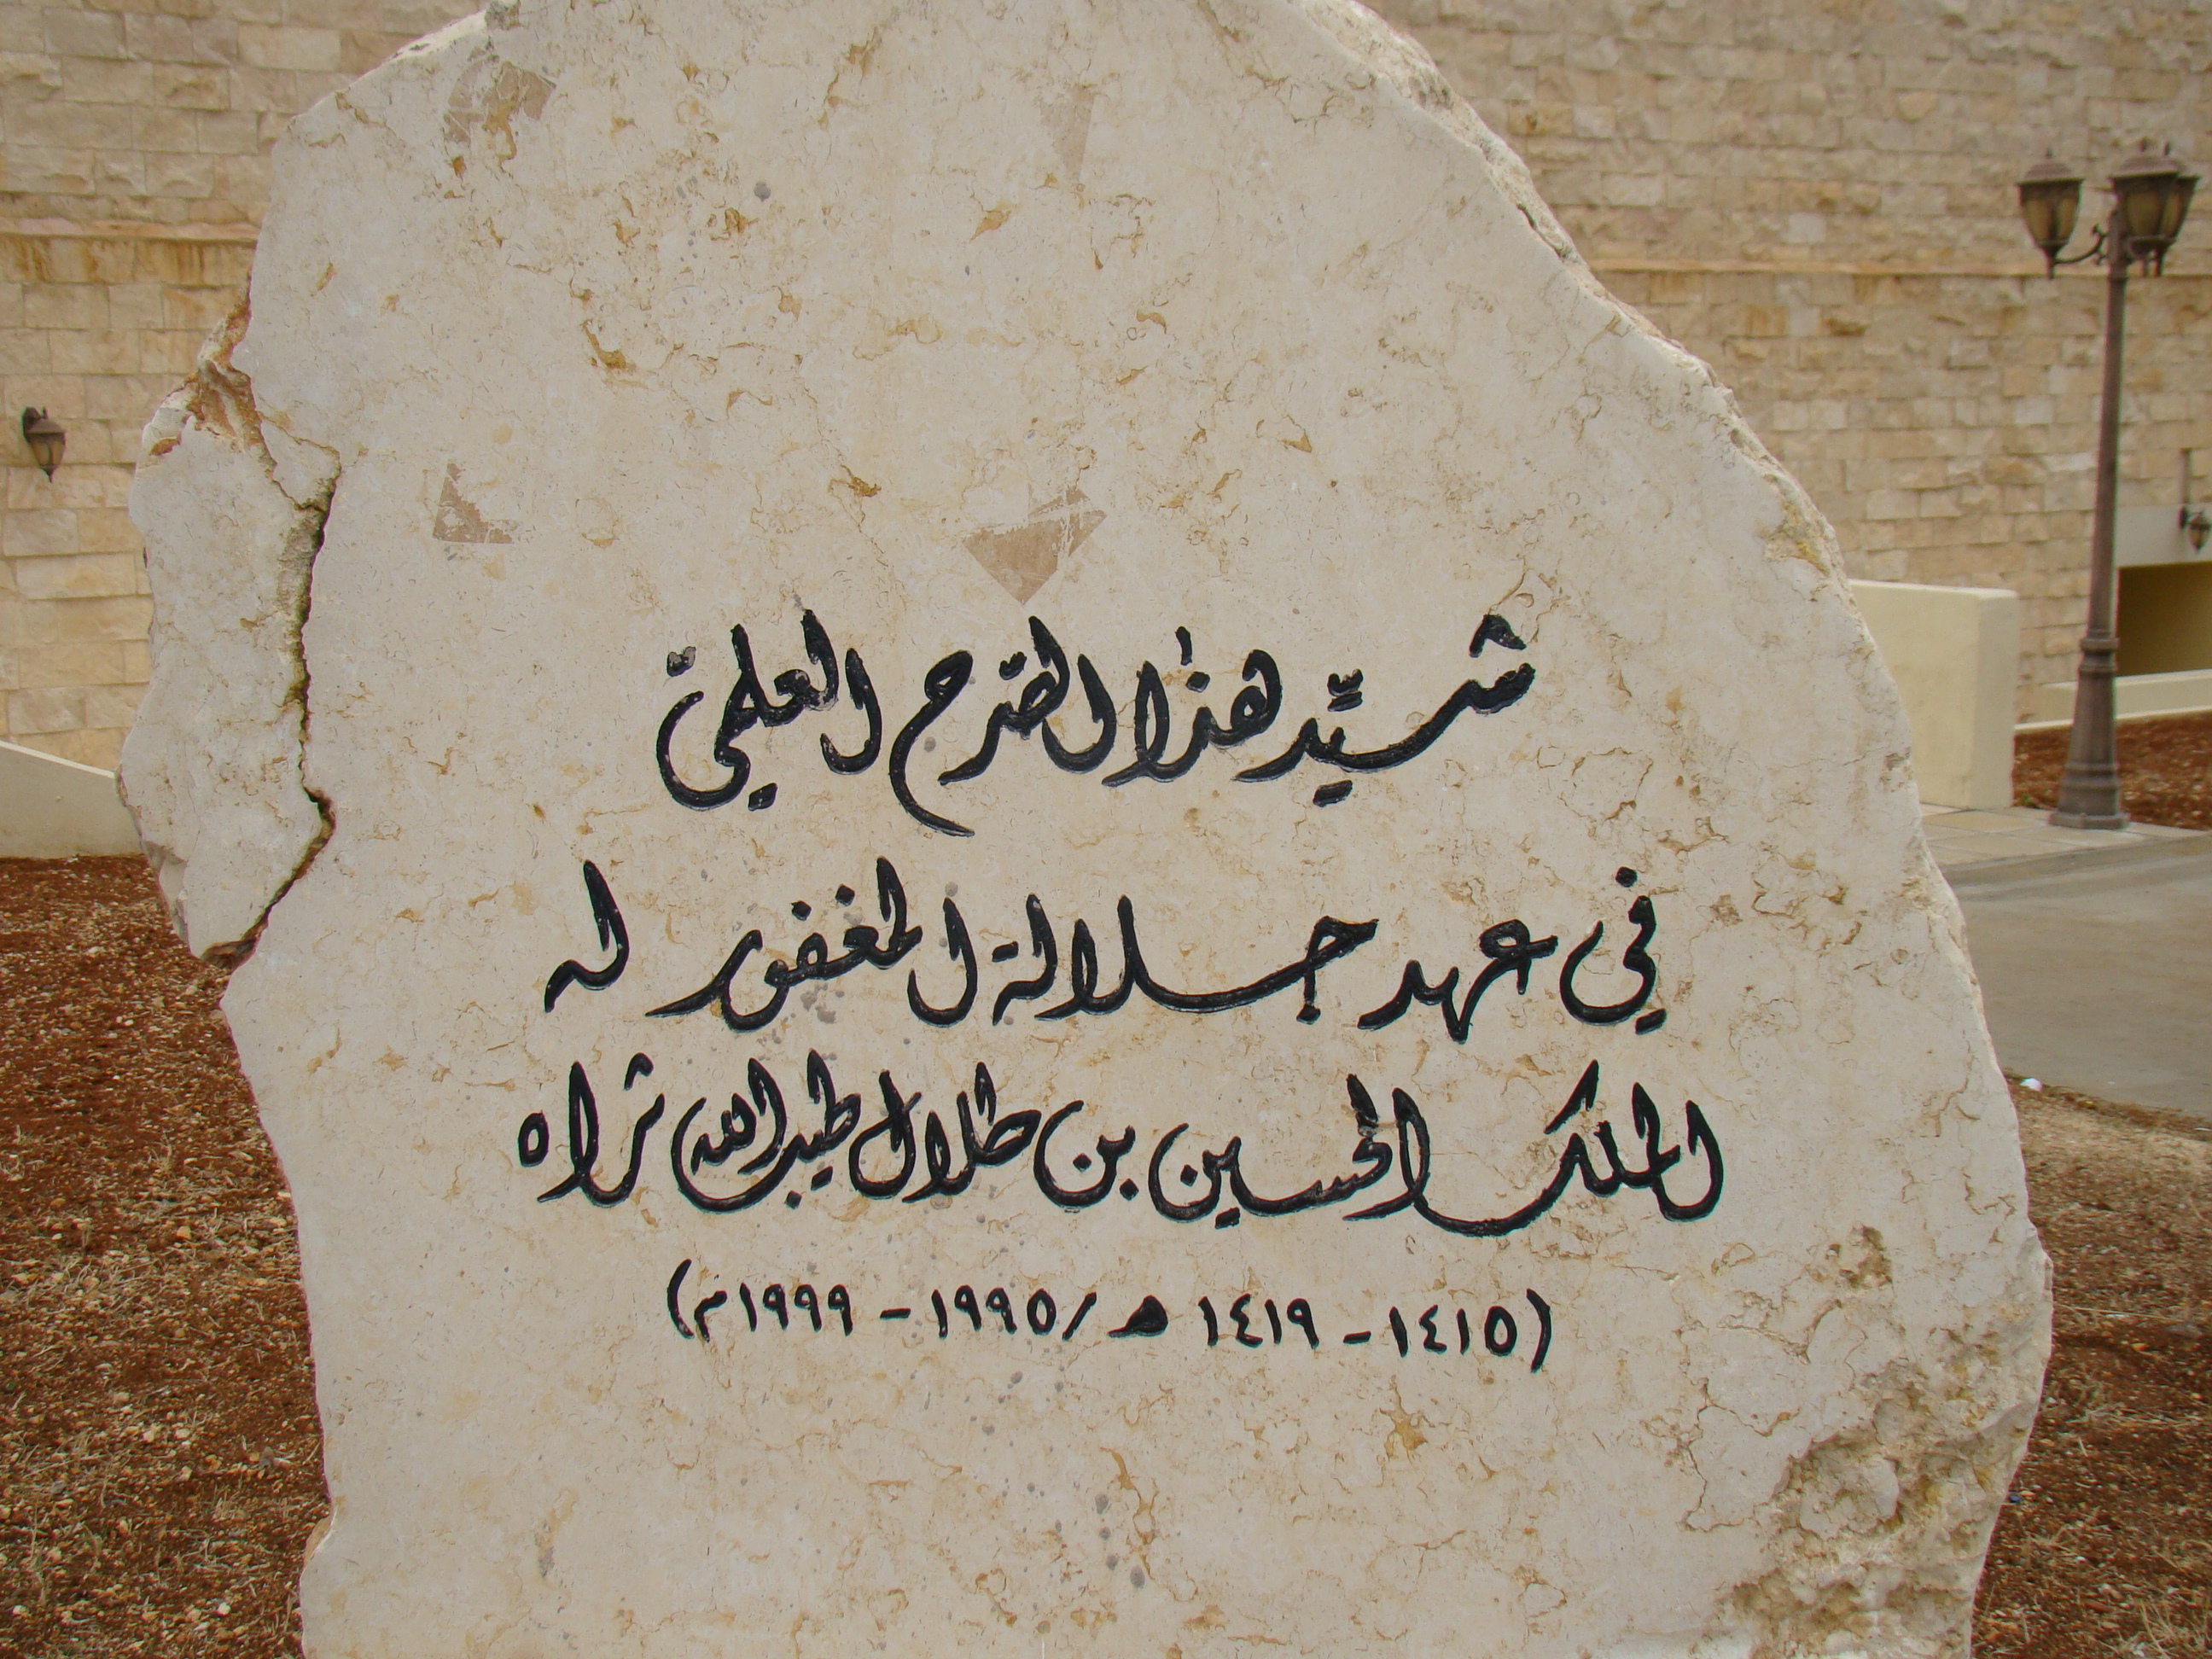 شيّد هذا الصّرح العلميّ
في عهد جلالة المغفور له
الملك الحسين بن طلال طيب الله ثراه
(١٤١٥ - ١٤١٩ هـ / ١٩٩٥ - ١٩٩٩م)